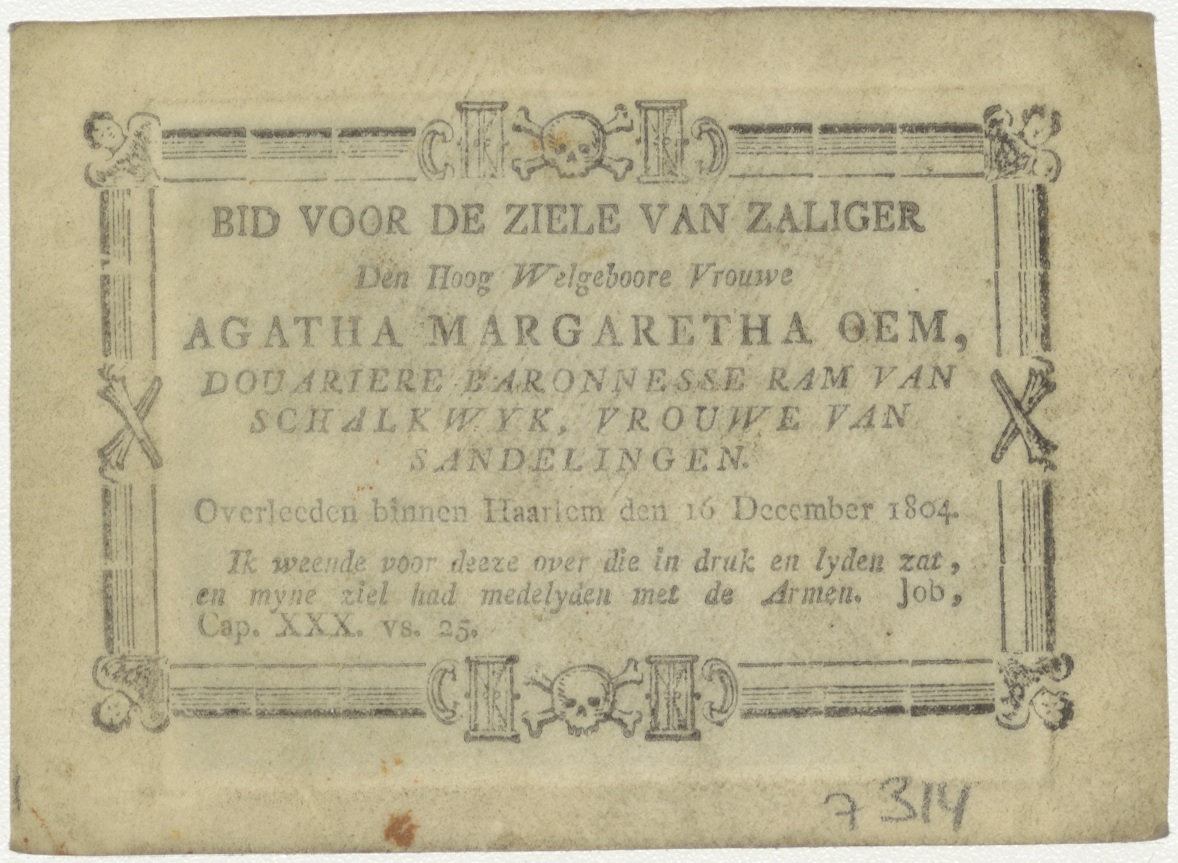 BID VOOR DE ZIELE VAN ZALIGER
Den Hoog Welgeboore Vrouwe
AGATHA MARGARETHA OEM,
DOUARIERE BARONNESSE RAM VAN
SCHALKWYK, VROUWE VAN
SANDELINGEN.
Overleeden binnen Haarlem den 16 December 1804.
Ik weende voor deeze over die in druk en lyden zat,
en myne ziel had medelyden met de Armen. Job,
Cap. XXX. vs. 25.
7314